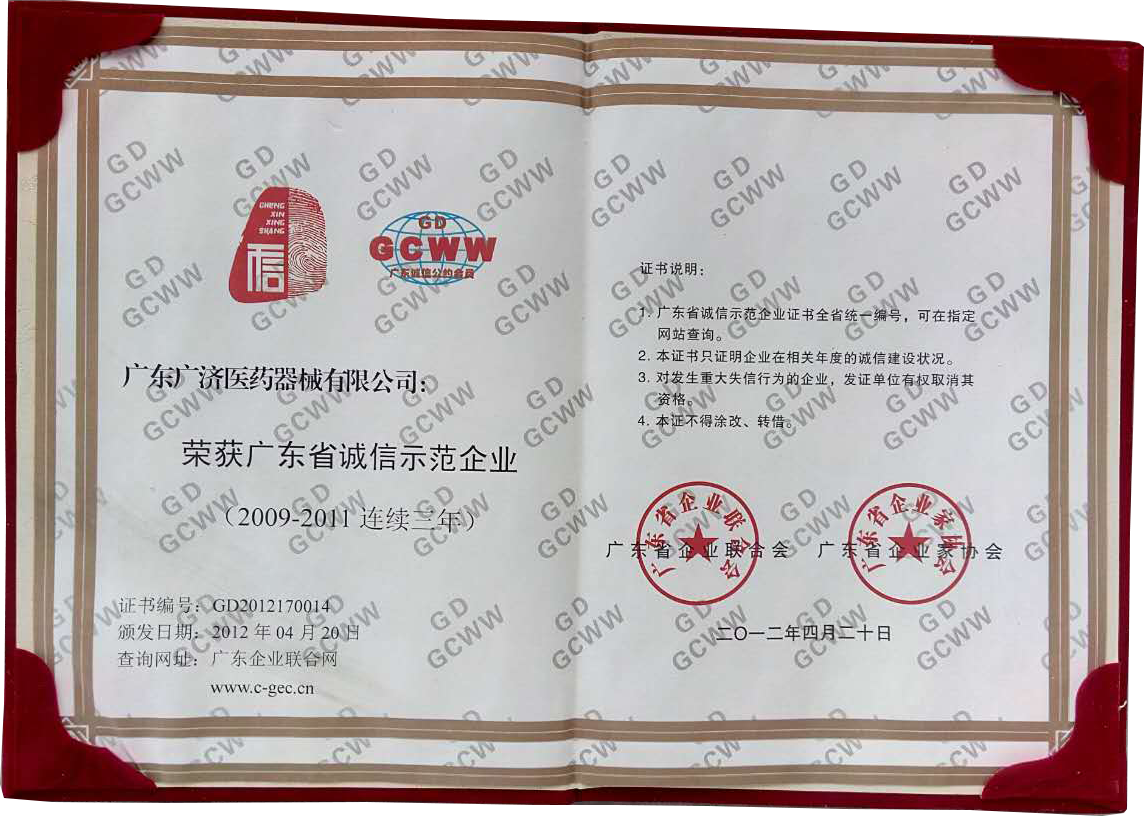 CHENG
XIN
XING
SHANG
信
GD
GCWW
广东诚信公约合网
广东广济医药器械有限公司：
荣获广东省诚信示范企业
（2009-2011 连续三年）
证书编号：GD2012170014
颁发日期：2012 年 04 月 20 日
查询网址：广东企业联合网
www.c-gec.cn
证书说明：
1. 广东省诚信示范企业证书全省统一编号，可在指定
网站查询。
2. 本证书只证明企业在相关年度的诚信建设状况。
3. 对发生重大失信行为的企业，发证单位有权取消其
资格。
4. 本证不得涂改、转借。
广东省企业联合会
广东省企业家协会
广东省企业联合会 广东省企业家协会
二〇一二年四月二十日
GD
GCWW